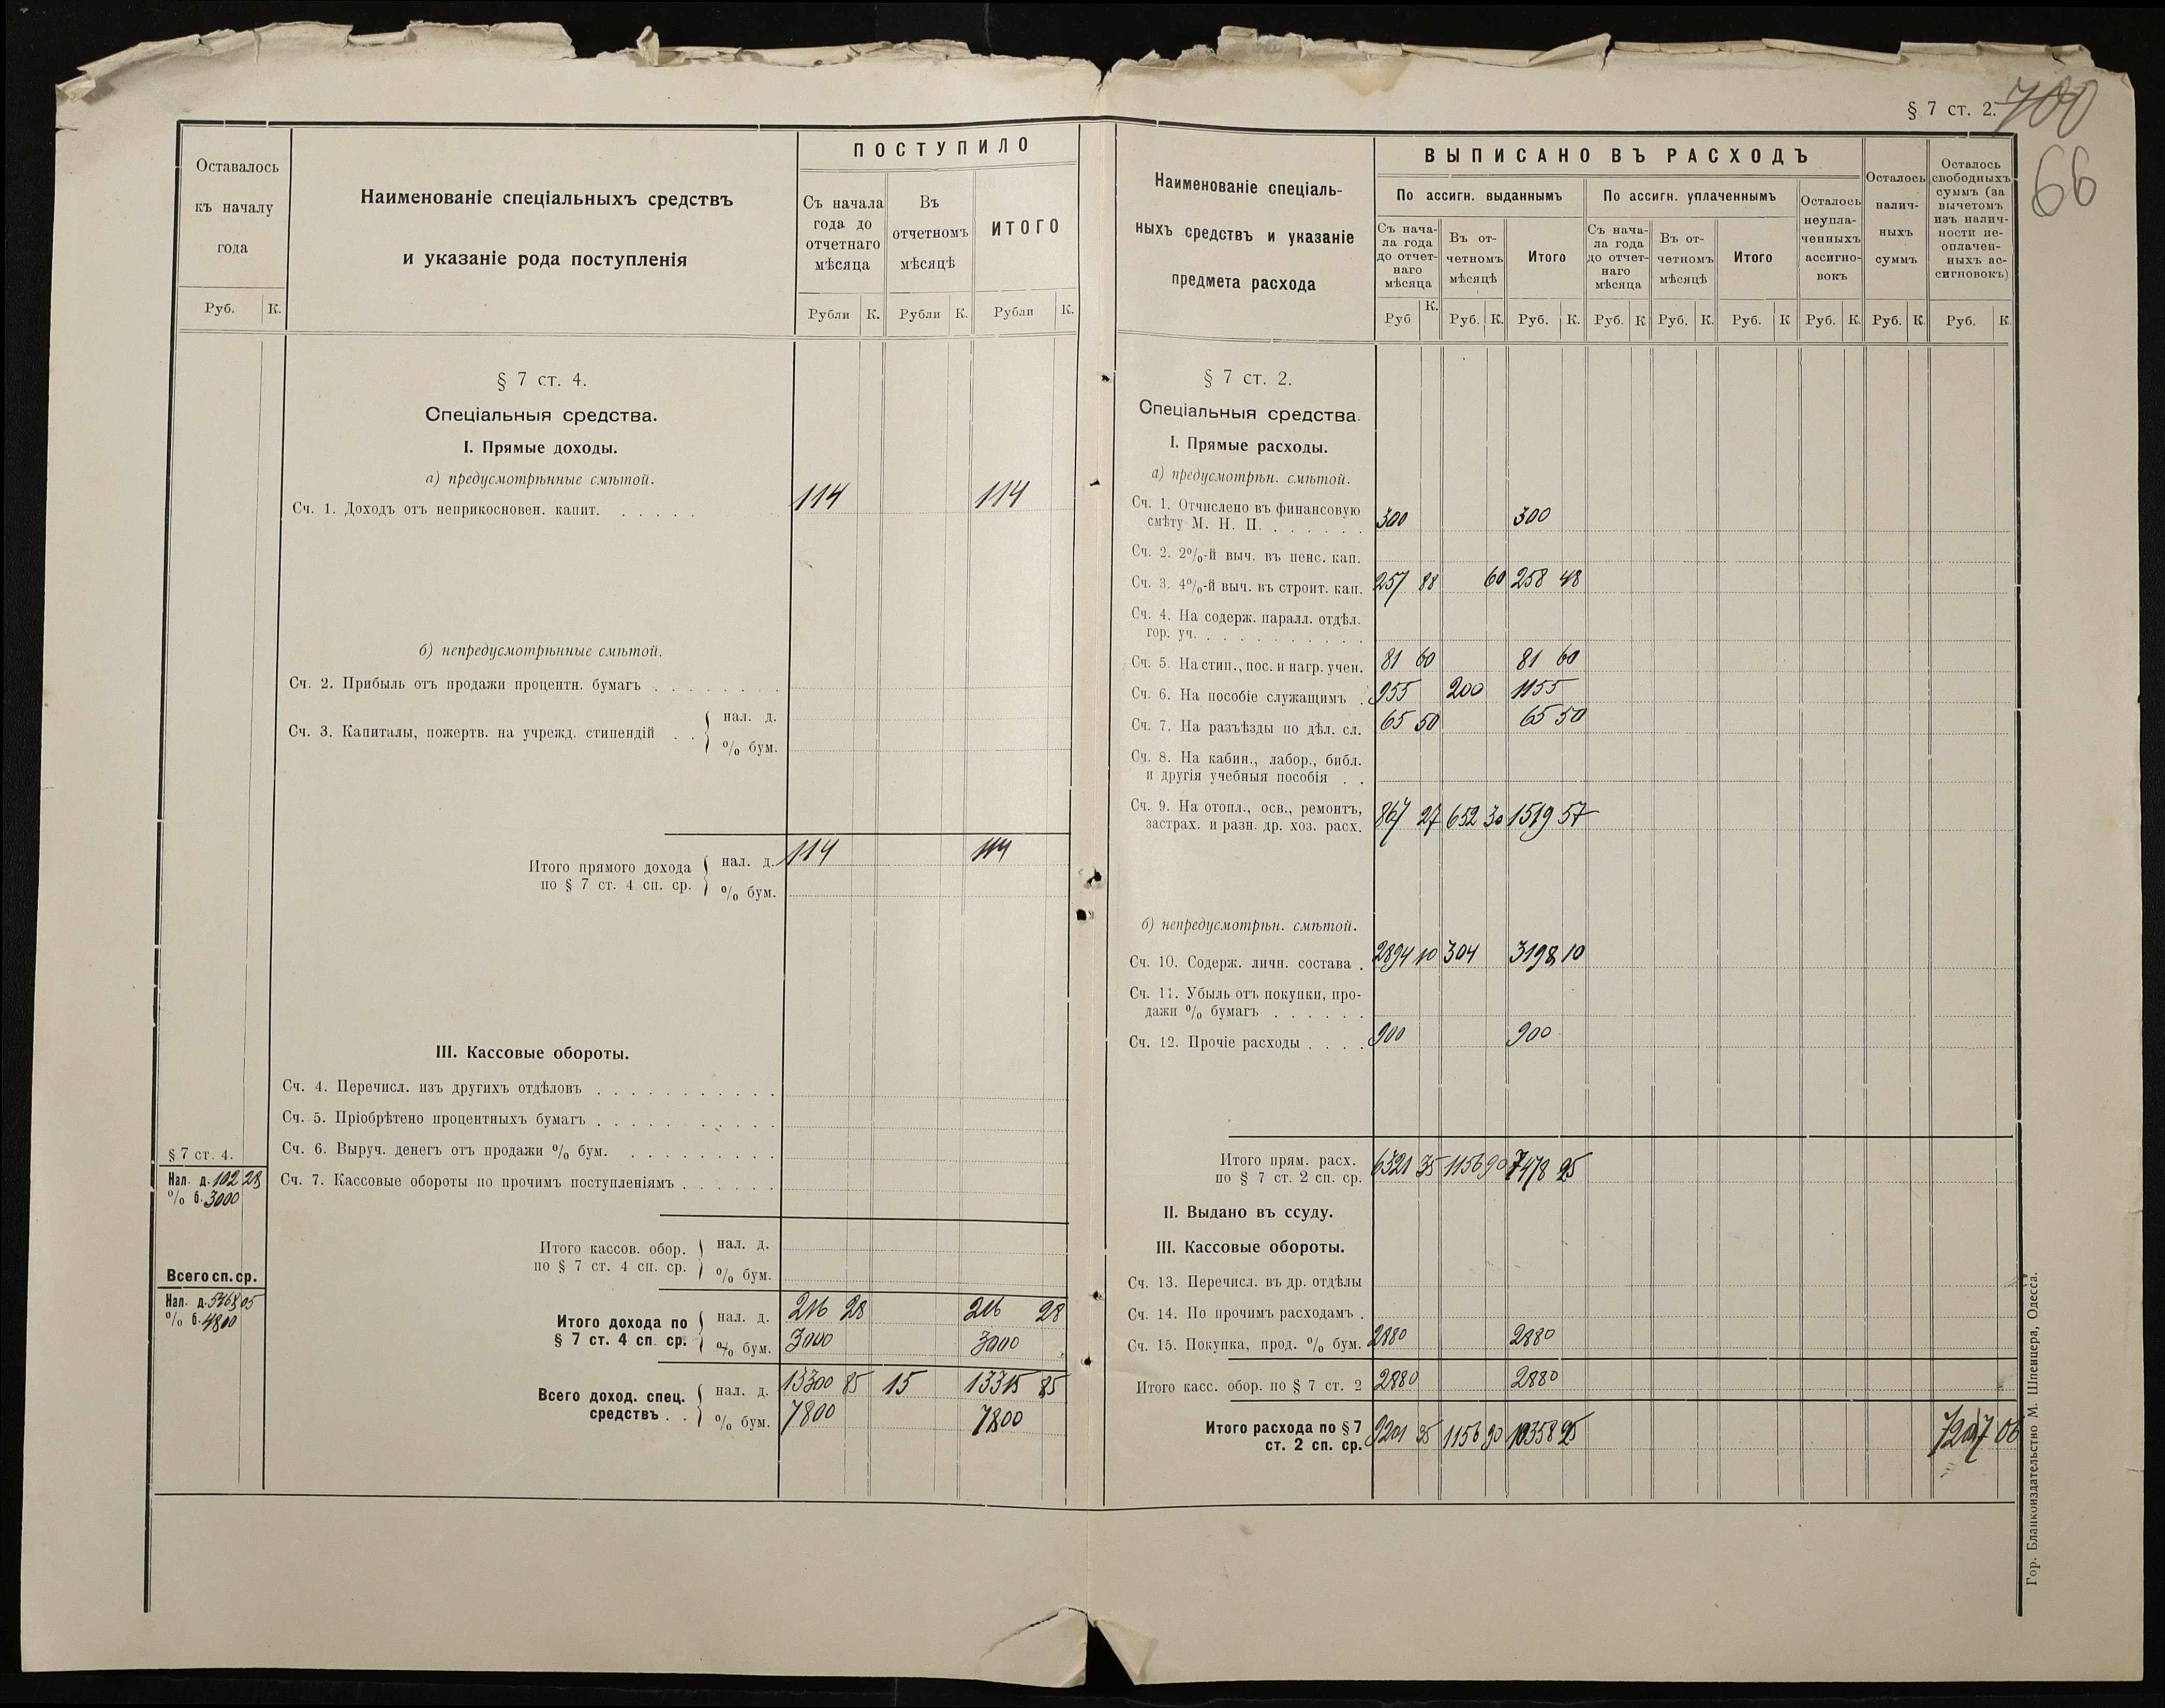 § 7 ст. 2.
700
66
Оставалось
къ началу
года
Руб. К.
Наименованіе спеціальныхъ средствъ
и указаніе рода поступленія
ПОСТУПИЛО
Съ начала
года до
отчетнаго
мѣсяца
Въ
отчетномъ
мѣсяцѣ
ИТОГО
Рубли К. Рубли К. Рубли К.
§ 7 ст. 4.
Спеціальныя средства.
I. Прямые доходы.
а) предусмотрѣнные смѣтой.
Сч. 1. Доходъ отъ неприкосновен. капит. . . . . . 114 114
б) непредусмотрѣнные смѣтой.
Сч. 2. Прибыль отъ продажи процентн. бумагъ . . . . . . . .
Сч. 3. Капиталы, пожертв. на учрежд. стипендій . .
нал. д.
% бум.
Итого прямого дохода
по § 7 ст. 4 сп. ср.
нал. д. 114 114
% бум.
III. Кассовые обороты.
Сч. 4. Перечисл. изъ другихъ отдѣловъ . . . . . . . . . . .
Сч. 5. Пріобрѣтено процентныхъ бумагъ . . . . . . . . . . .
Сч. 6. Выруч. денегъ отъ продажи % бум. . . . . . . . . .
Сч. 7. Кассовые обороты по прочимъ поступленіямъ . . . . . .
§ 7 ст. 4.
Нал. д. 102 28
% б. 3000
Всего сп. ср.
Нал. д. 5468 05
% б. 4800
Итого кассов. обор.
по § 7 ст. 4 сп. ср.
нал. д.
% бум.
Итого дохода по
§ 7 ст. 4 сп. ср.
нал. д. 216 28 216 28
% бум. 3000 3000
Всего доход. спец.
средствъ . .
нал. д. 13300 85 15 13315 85
% бум. 7800 7800
Наименованіе спеціаль-
ныхъ средствъ и указаніе
предмета расхода
ВЫПИСАНО ВЪ РАСХОДЪ
По ассигн. выданнымъ
Съ нача-
ла года
до отчет-
наго
мѣсяца
Въ от-
четномъ
мѣсяцѣ
Итого
По ассигн. уплаченнымъ
Съ нача-
ла года
до отчет-
наго
мѣсяца
Въ от-
четномъ
мѣсяцѣ
Итого
Осталось
неупла-
ченныхъ
ассигно-
вокъ
Осталось
налич-
ныхъ
суммъ
Осталось
свободныхъ
суммъ (за
вычетомъ
изъ налич-
ности не-
оплачен-
ныхъ ас-
сигновокъ)
Руб К. Руб. К. Руб. К. Руб. К Руб. К. Руб. К Руб. К. Руб. К. Руб. К.
§ 7 ст. 2.
Спеціальныя средства.
I. Прямые расходы.
а) предусмотрѣн. смѣтой.
Сч. 1. Отчислено въ финансовую
смѣту М. Н. П. . . . . . . 300 300
Сч. 2. 2%-й выч. въ пенс. кап.
Сч. 3. 4%-й выч. въ строит. кап. 257 88 60 258 48
Сч. 4. На содерж. паралл. отдѣл.
гор. уч. . . . . . . . . . .
Сч. 5. На стип., пос. и нагр. учен. 81 60 81 60
Сч. 6. На пособіе служащимъ . 955 200 1155
Сч. 7. На разъѣзды по дѣл. сл. 65 50 65 50
Сч. 8. На кабин., лабор., библ.
и другія учебныя пособія . .
Сч. 9. На отопл., осв., ремонтъ,
застрах. и разн. др. хоз. расх. 867 27 652 30 1519 57
б) непредусмотрѣн. смѣтой.
Сч. 10. Содерж. личн. состава . 2894 10 304 3198 10
Сч. 11. Убыль отъ покупки, про-
дажи % бумагъ . . . . . .
Сч. 12. Прочіе расходы . . . . 900 900
Итого прям. расх.
по § 7 ст. 2 сп. ср. 6321 35 1156 90 7478 25
II. Выдано въ ссуду.
III. Кассовые обороты.
Сч. 13. Перечисл. въ др. отдѣлы
Сч. 14. По прочимъ расходамъ .
Сч. 15. Покупка, прод. % бум. 2880 2880
Итого касс. обор. по § 7 ст. 2 2880 2880
Итого расхода по § 7
ст. 2 сп. ср. 9201 35 1156 90 10358 25 7207 06
Гор. Бланкоиздательство М. Шпенцера, Одесса.